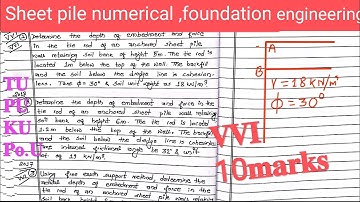 Sheet pile numerical ,foundation engineering
VVI Determine the depth of embedment and force
in the tie rod of an anchored sheet pile
wall retaining soil bank of height 5m. The tie rod is
located 1m below the top of the wall. The backfill
and the soil below the dredge line is cohesion-
less. Take ϕ = 30° & unit weight as 18 kN/m³
Determine the depth of embedment and force in the
tie rod of an anchored sheet pile wall retaining
soil bank of height 6m. The tie rod is located
below the top of the wall. The backfill
and the soil below the dredge line is cohesionless
internal friction angle be 32° & unit
of 19 kN/m³.
2017
Using free earth support method, determine the
depth of embedment and force in the
tie rod of an anchored sheet pile retaining
TU
PU
KU
Po.U
A
B
γ = 18 kN/m³
ϕ = 30°
VVI
10marks